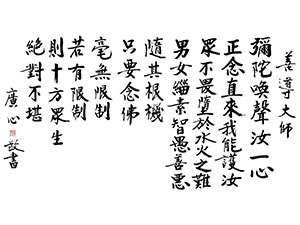 善導大師
彌陀喚聲汝一心
正念直來我能護汝
眾不畏墮於水火之難
男女緇素智愚善惡
隨其根機
只要念佛
毫無限制
若有限制
則十方眾生
絕對不堪
廣心
敬書